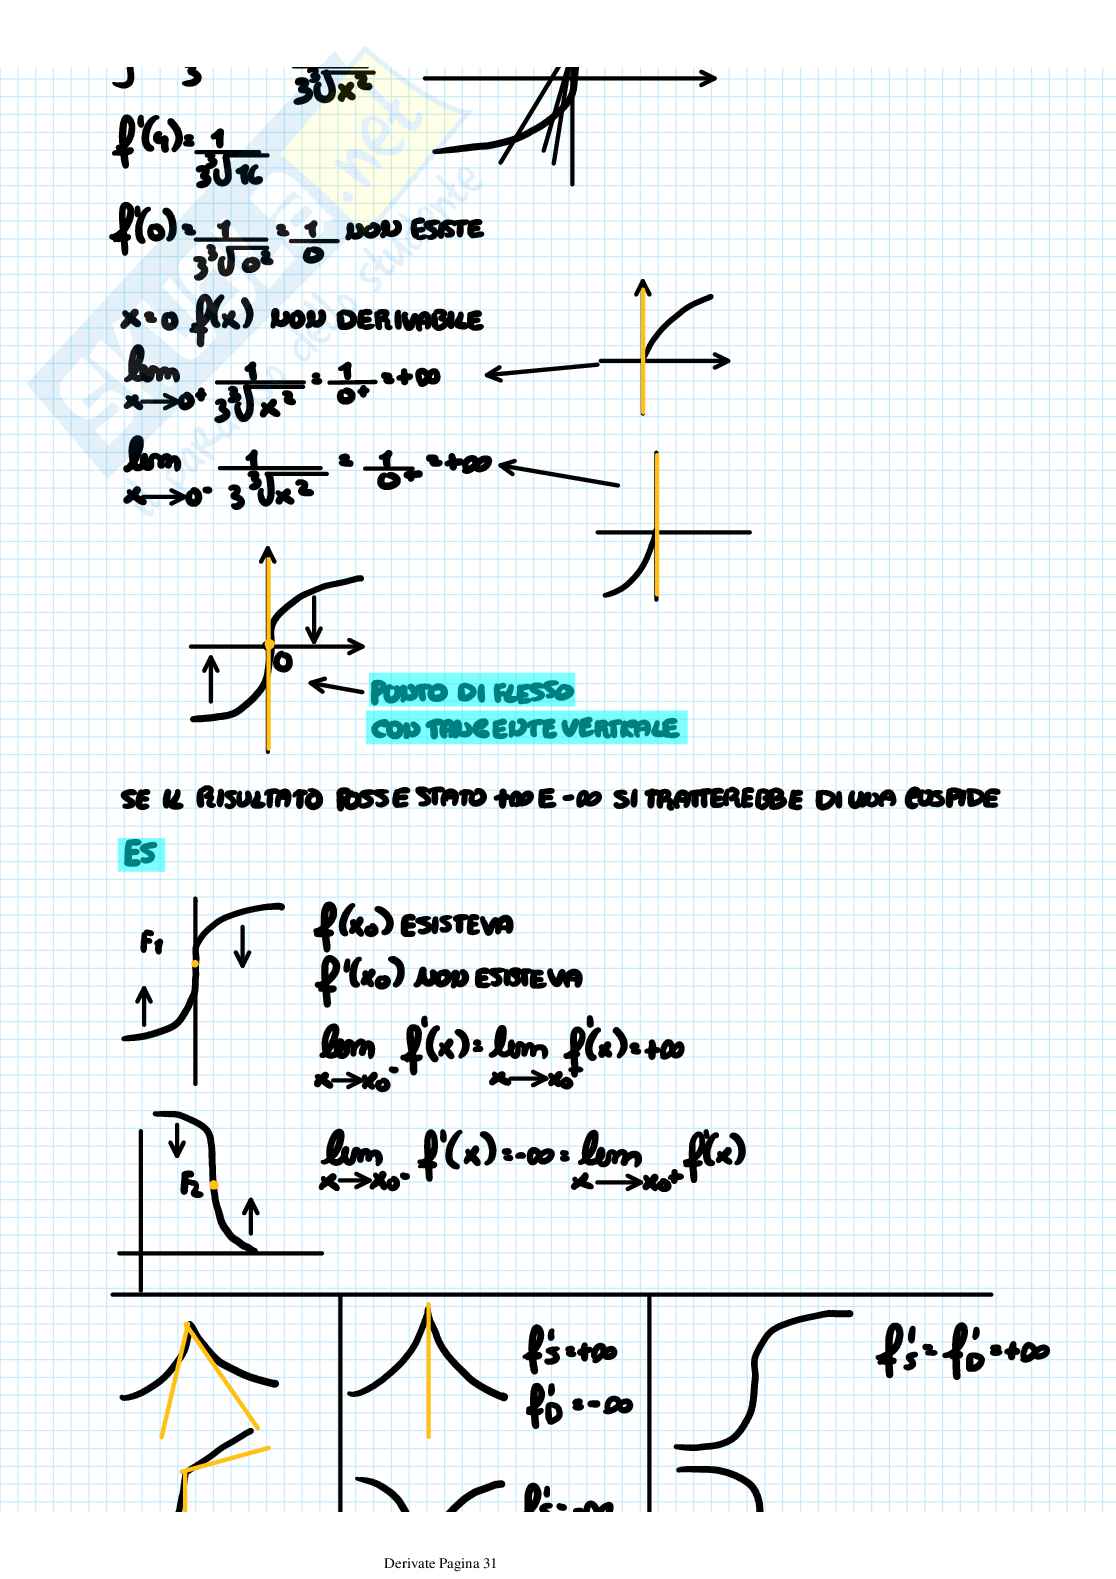 3∛x²
f'(4)=1/3∛16
f'(0)=1/3∛0²=1/0 NON ESISTE
x=0 f(x) NON DERIVABILE
lim x→0⁺ 1/3∛x²=1/0⁺=+∞
lim x→0⁻ 1/3∛x²=1/0⁺=+∞
0
PUNTO DI FLESSO
CON TANGENTE VERTICALE
SE IL RISULTATO FOSSE STATO +∞ E -∞ SI TRATTEREBBE DI UNA CUSPIDE
ES
F₁
f(x₀) ESISTEVA
f'(x₀) NON ESISTEVA
lim x→x₀⁻ f'(x)=lim x→x₀⁺ f'(x)=+∞
F₂
lim x→x₀⁻ f'(x)=-∞=lim x→x₀⁺ f'(x)
f'S=+∞
f'D=-∞
f'S=f'D=+∞
f'S=-∞
Derivate Pagina 31